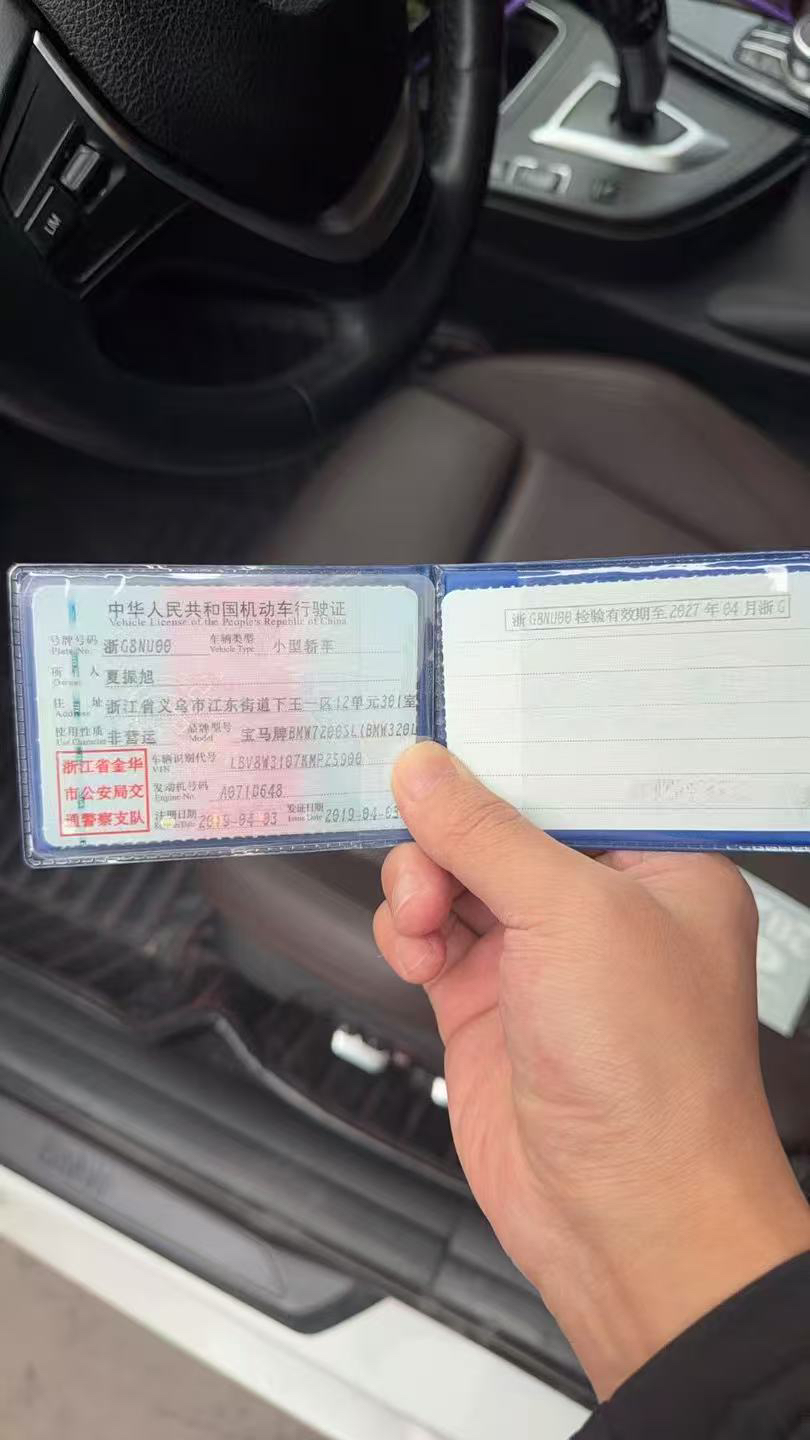 LIM
中华人民共和国机动车行驶证
Vehicle License of the People's Republic of China
号牌号码 浙G8NU00 车辆类型 小型轿车
Plate No. Vehicle Type
所 人 夏振旭
Owner
住 址 浙江省义乌市江东街道下王一区12单元301室
Address
使用性质 非营运 品牌型号 宝马牌BMW7200SL(BMW320L
Use Character Model
浙江省金华
市公安局交
通警察支队
车辆识别代号
VIN
发动机号码 A071D648
Engine No.
注册日期 2019-04-03 发证日期 2019-04-03
Issue Date
浙G8NU00检验有效期至2027年04月浙G